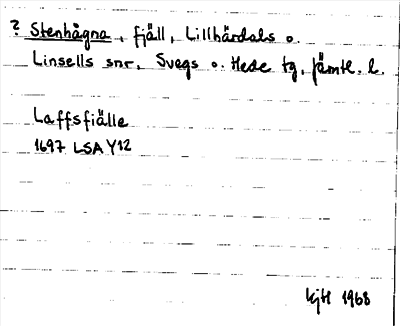 ? Stenhågna, fjäll, Lillhärdals o.
Linsells snr, Svegs o. Hede tg, Jämtl. l.
Laffsfiälle
1697 LSA Y12
1968